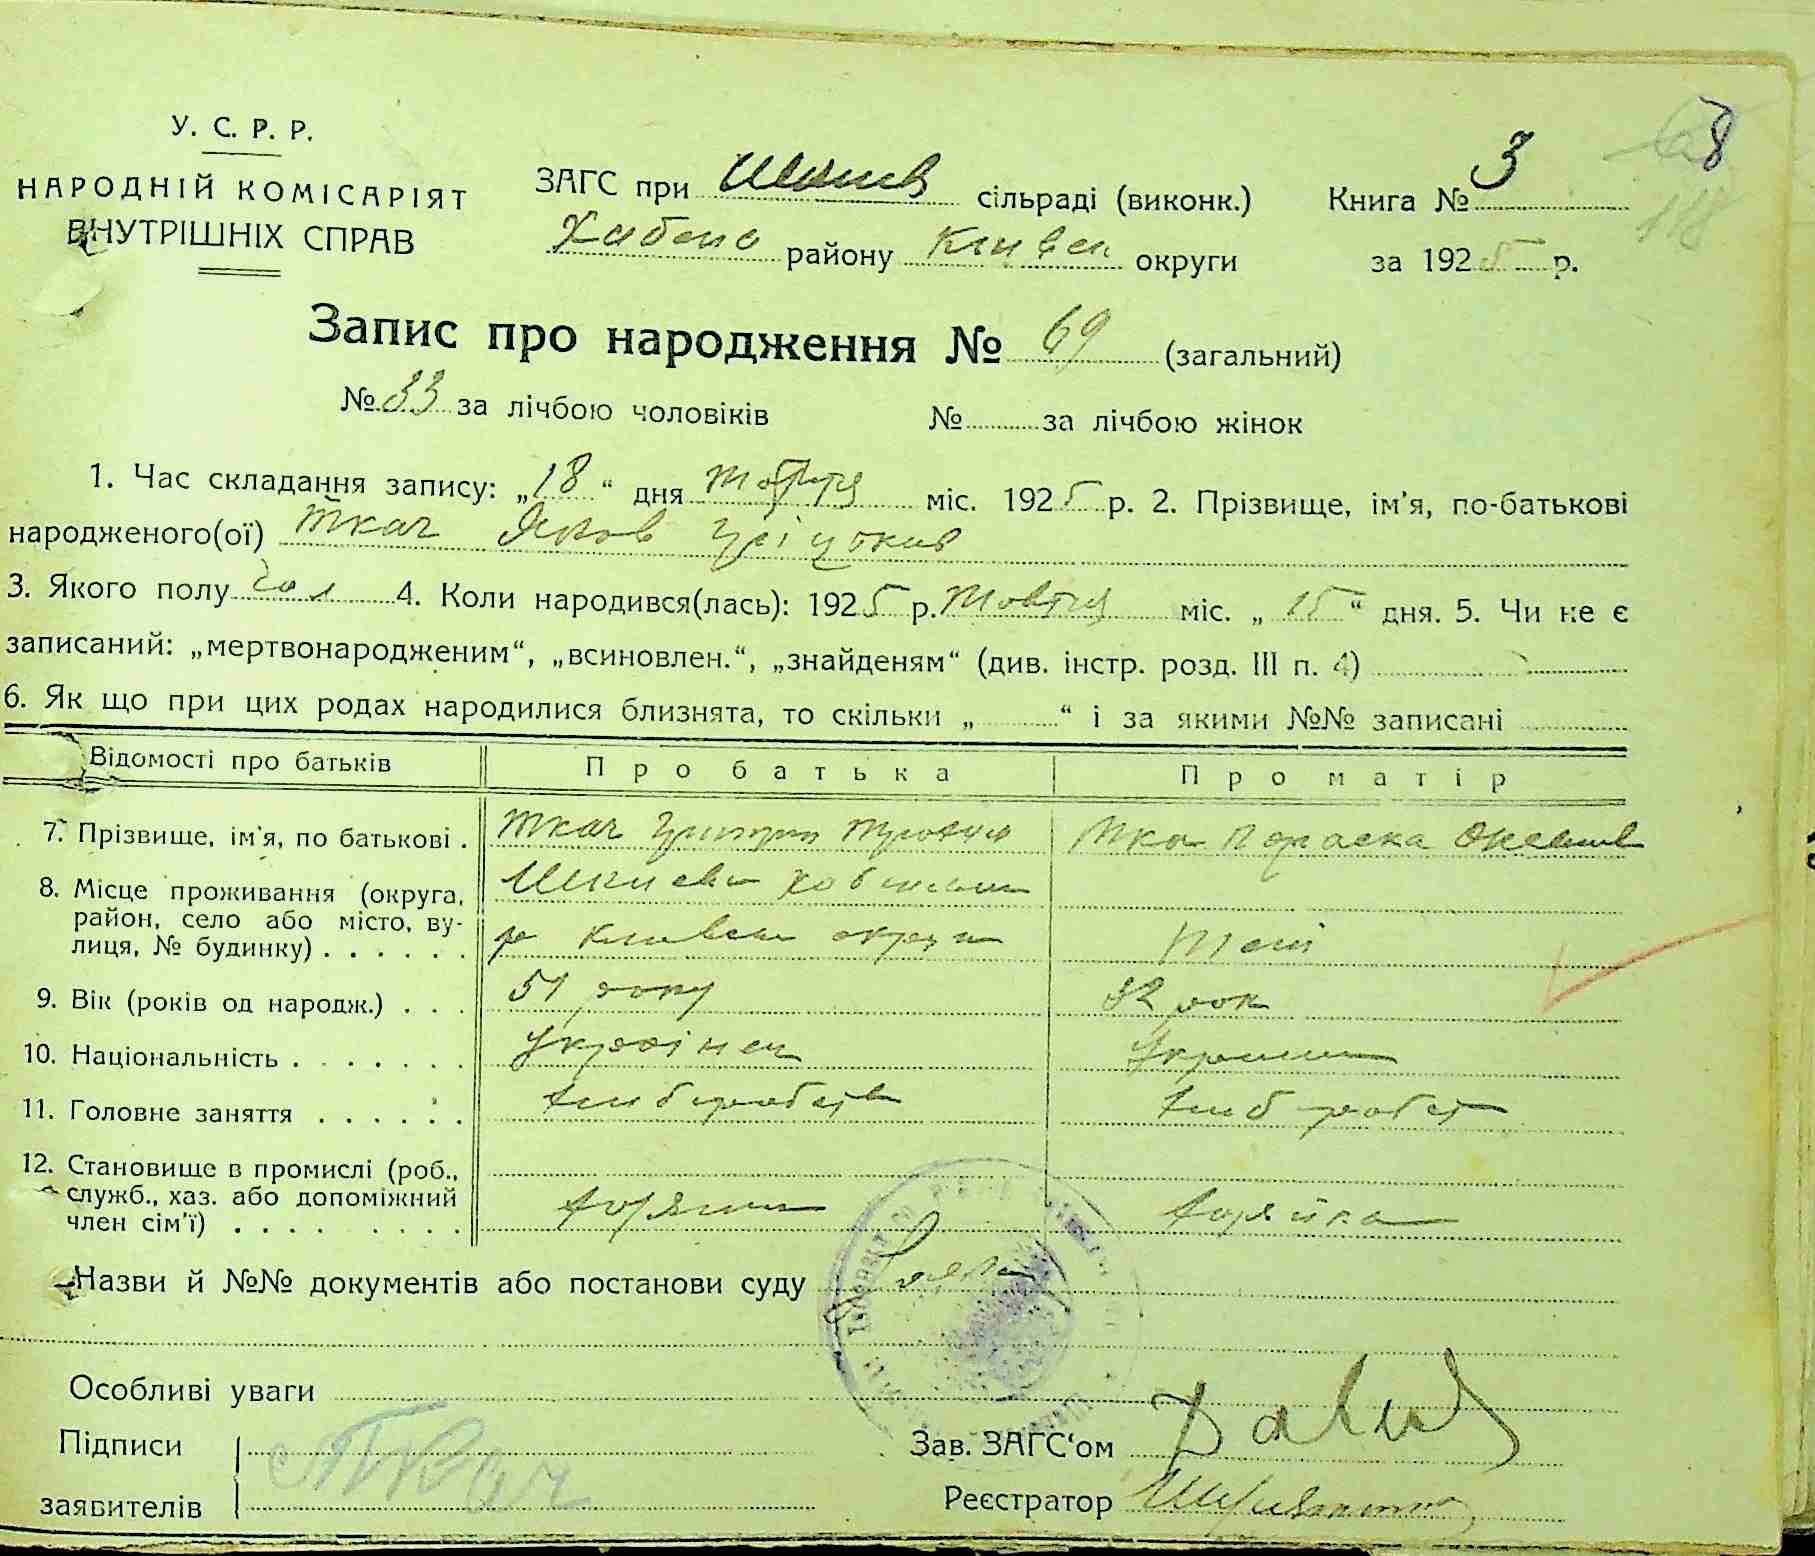 У. С. Р. Р.
НАРОДНІЙ КОМІСАРІЯТ
ВНУТРІШНІХ СПРАВ
ЗАГС при сільраді (виконк.)
Хабенс району Київськ округи
Книга № 3
за 1925 р.
68
118
Запис про народження № 69 (загальний)
№ 33 за лічбою чоловіків № за лічбою жінок
1. Час складання запису: „18“ дня жовтня міс. 1925 р. 2. Прізвище, ім'я, по-батькові
народженого(ої) Ткач Яков
3. Якого полу чол 4. Коли народився(лась): 1925 р. жовтня міс. „15“ дня. 5. Чи не є
записаний: „мертвонародженим“, „всиновлен.“, „знайденям“ (див. інстр. розд. III п. 4)
6. Як що при цих родах народилися близнята, то скільки „ “ і за якими №№ записані
Відомості про батьків Про батька Про матір
7. Прізвище, ім'я, по батькові . Ткач Григорій Ткач Параска
8. Місце проживання (округа,
район, село або місто, ву-
лиця, № будинку) . . . . . . р Київськ округи
9. Вік (років од народж.) . . . 51 року 32 рок
10. Національність . . . . . . . Українец Украин
11. Головне заняття . . . . . . хліборобств хлібороб
12. Становище в промислі (роб.,
служб., хаз. або допоміжний
член сім'ї) . . . . . . . . . хозяин хозяйка
Назви й №№ документів або постанови суду
Особливі уваги
Підписи Зав. ЗАГС'ом
заявителів Ткач Реєстратор